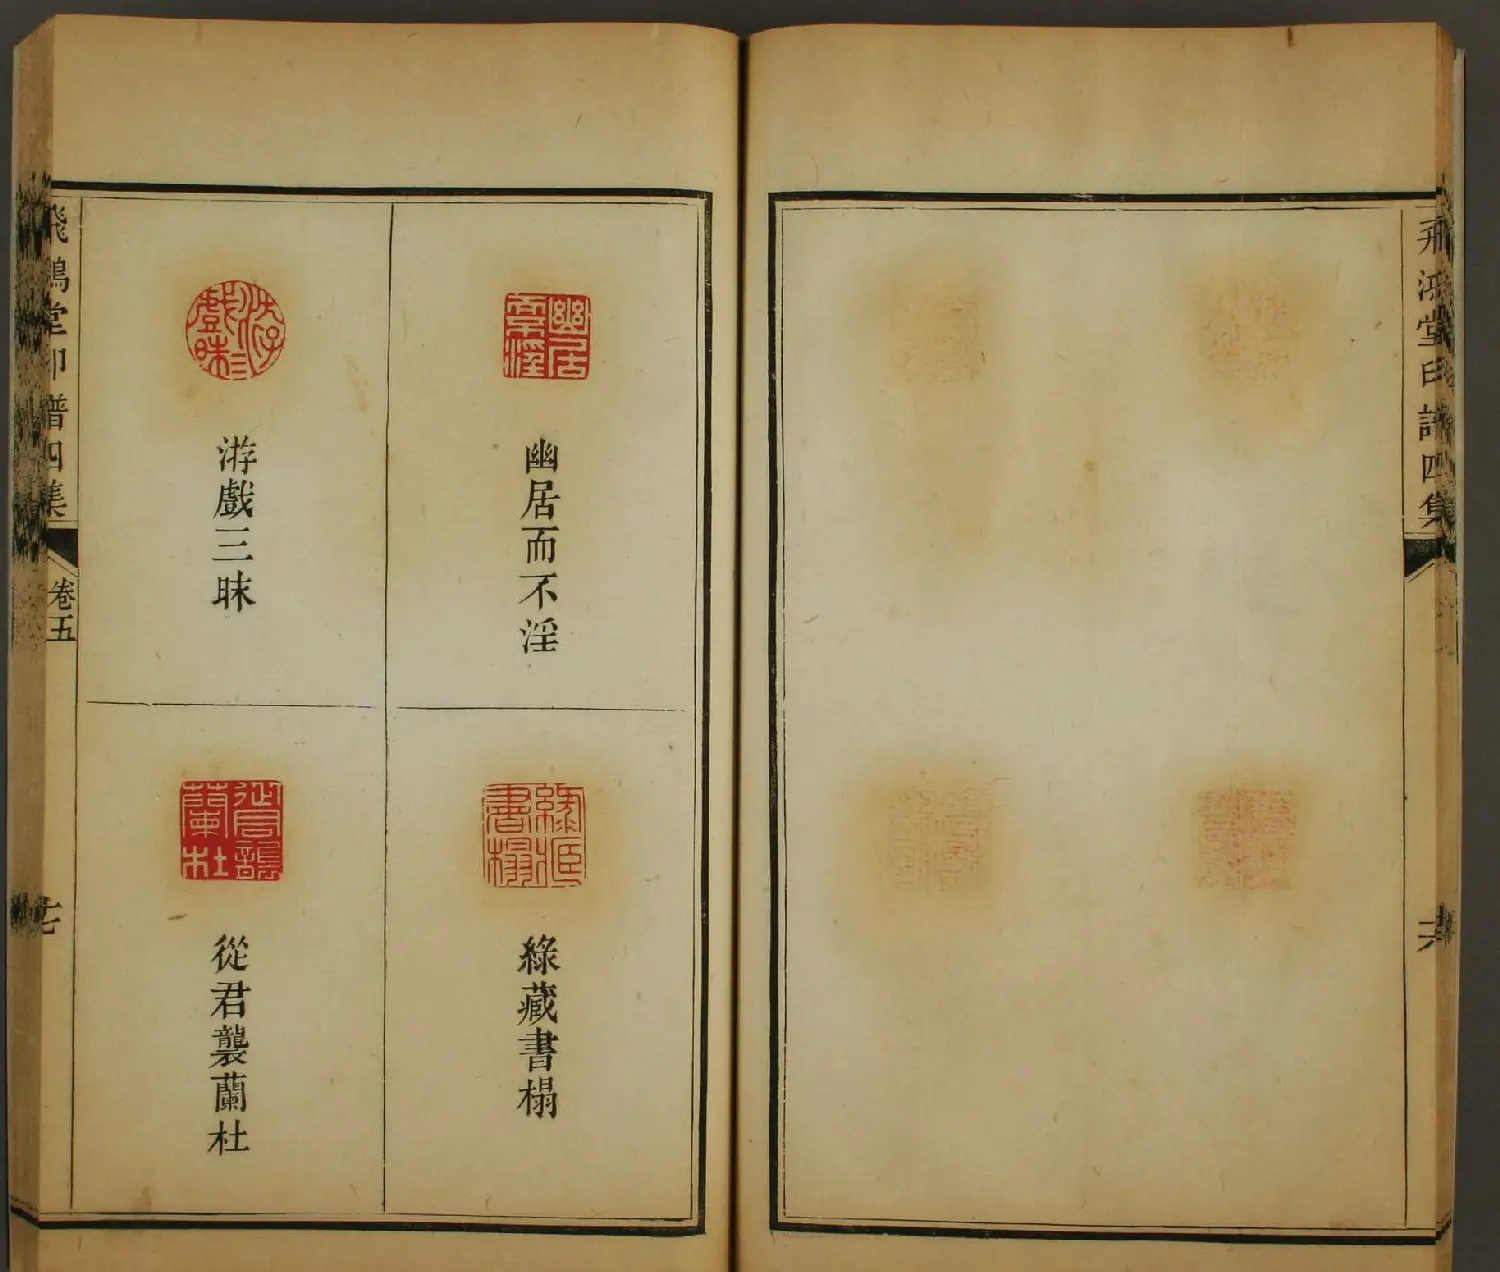 飛鴻堂印譜四集
六
幽居而不淫
綠藏書榻
游戲三昧
從君襲蘭杜
飛鴻堂印譜四集
卷五
七